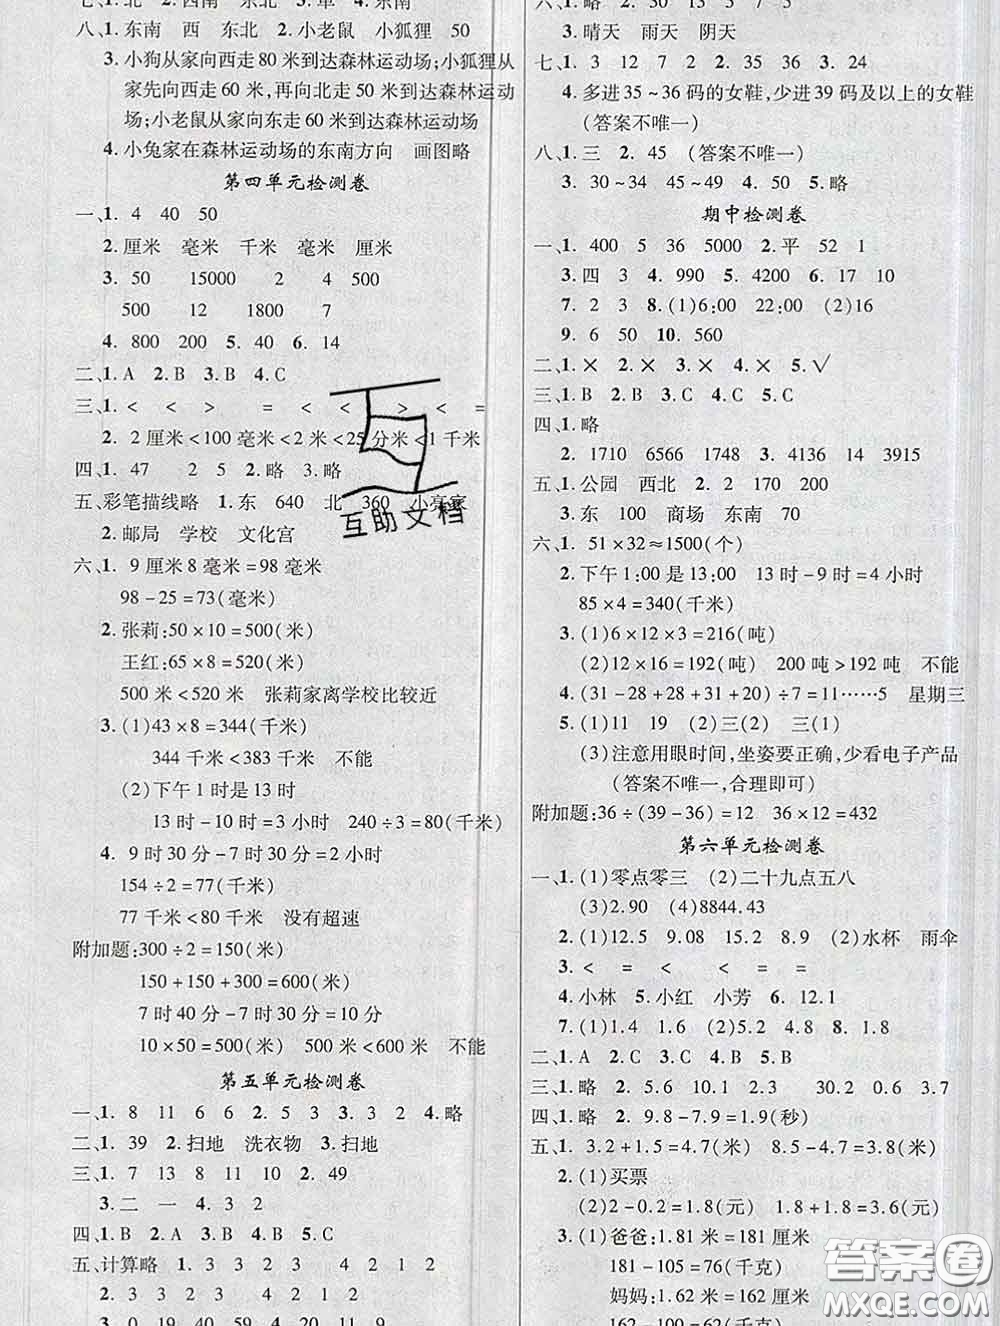 八、1. 东南 西 东北 2. 小老鼠 小狐狸 50
3. 小狗从家向西走80米到达森林运动场；小狐狸从
家先向西走60米，再向北走50米到达森林运动
场；小老鼠从家向东走60米到达森林运动场
4. 小兔家在森林运动场的东南方向 画图略
第四单元检测卷
一、1. 4 40 50
2. 厘米 毫米 千米 毫米 厘米
3. 50 15000 2 4 500
500 12 1800 7
4. 800 200 5. 40 6. 14
二、1. A 2. B 3. B 4. C
三、1. < < > = < < > < =
2. 2厘米<100毫米<2米<25分米<1千米
四、1. 47 2 5 2. 略 3. 略
五、彩笔描线略 1. 东 640 北 360 小亮家
2. 邮局 学校 文化宫
六、1. 9厘米8毫米=98毫米
98-25=73(毫米)
2. 张莉:50×10=500(米)
王红:65×8=520(米)
500米<520米 张莉家离学校比较近
3. (1)43×8=344(千米)
344千米<383千米 不能
(2)下午1时是13时
13时-10时=3小时 240÷3=80(千米)
4. 9时30分-7时30分=2小时
154÷2=77(千米)
77千米<80千米 没有超速
附加题:300÷2=150(米)
150+150+300=600(米)
7时40分-7时30分=10分
10×50=500(米) 500米<600米 不能
第五单元检测卷
一、1. 8 11 6 6 2. 5 3 3. 3 2 4. 略
二、1. 39 2. 扫地 洗衣物 3. 扫地
三、1. 7 13 8 11 10 2. 49
3. 二 一 4. 3 2
四、1. B 2. A 3. B 4. B 5. C
五、计算略 1. 3 2 3 3 4 2 1 2
2. 3 3 3 3 4 2 1 2
3. 0 19 40 4 1 2 1 2
六、1. 略 2. 5 3 3 7 5
3. 晴天 雨天 阴天
七、1. 3 12 7 8 2. 35 36 3. 24
4. 多进35~36码的女鞋,少进39码及以上的女鞋
(答案不唯一)
八、1. 三 2. 45 (答案不唯一)
3. 30~34 45~49 4. 50 5. 略
期中检测卷
一、1. 400 5 36 5000 2. 平 52 1
3. 四 3 4. 990 5. 4200 6. 17 10
7. 2 3 8. (1)6:00 22:00 (2)16
9. 6 50 10. 560
二、1. × 2. × 3. × 4. × 5. √
三、1. B 2. B 3. C 4. C 5. C
四、1. 略
2. 1710 6566 1748 3. 4136 14 3915
五、1. 公园 西北 2. 2 170 200
3. 东 100 商场 东南 70
六、1. 51×32≈1500(个)
2. 下午1:00是13:00 13时-9时=4小时
85×4=340(千米)
3. (1)6×12×3=216(吨)
(2)12×16=192(吨) 200吨>192吨 不能
4. (31-28+28+31+20)÷7=11……5 星期三
5. (1)11 19 (2)三(2) 三(1)
(3)注意用眼时间,坐姿要正确,少看电子产品
(答案不唯一,合理即可)
附加题:36÷(39-36)=12 36×12=432
第六单元检测卷
一、1. (1)零点零三 (2)二十九点五八
(3)2.90 (4)8844.43
2. (1)12.5 9.08 15.2 8.9 (2)水杯 雨伞
3. < = < < = =
4. 小林 5. 小红 小芳 6. 12.1
7. (1)1.4 1.6 (2)5.2 4.8 8. 1.8
二、1. A 2. C 3. C 4. B 5. B
三、1. 略 2. 5.6 10.1 2.3 30.2 0.6 3.7
四、1. 略 2. 9.8-7.9=1.9(秒)
五、1. 3.2+1.5=4.7(米) 8.5-4.7=3.8(米)
2. (1)买票
(2)2-0.2=1.8(元) 1.8+1.8=3.6(元)
3. (1)爸爸:1.81米=181厘米
181-105=76(千克)
妈妈:1.62米=162厘米
162-105
互助文档
答案圈
MXQE.COM